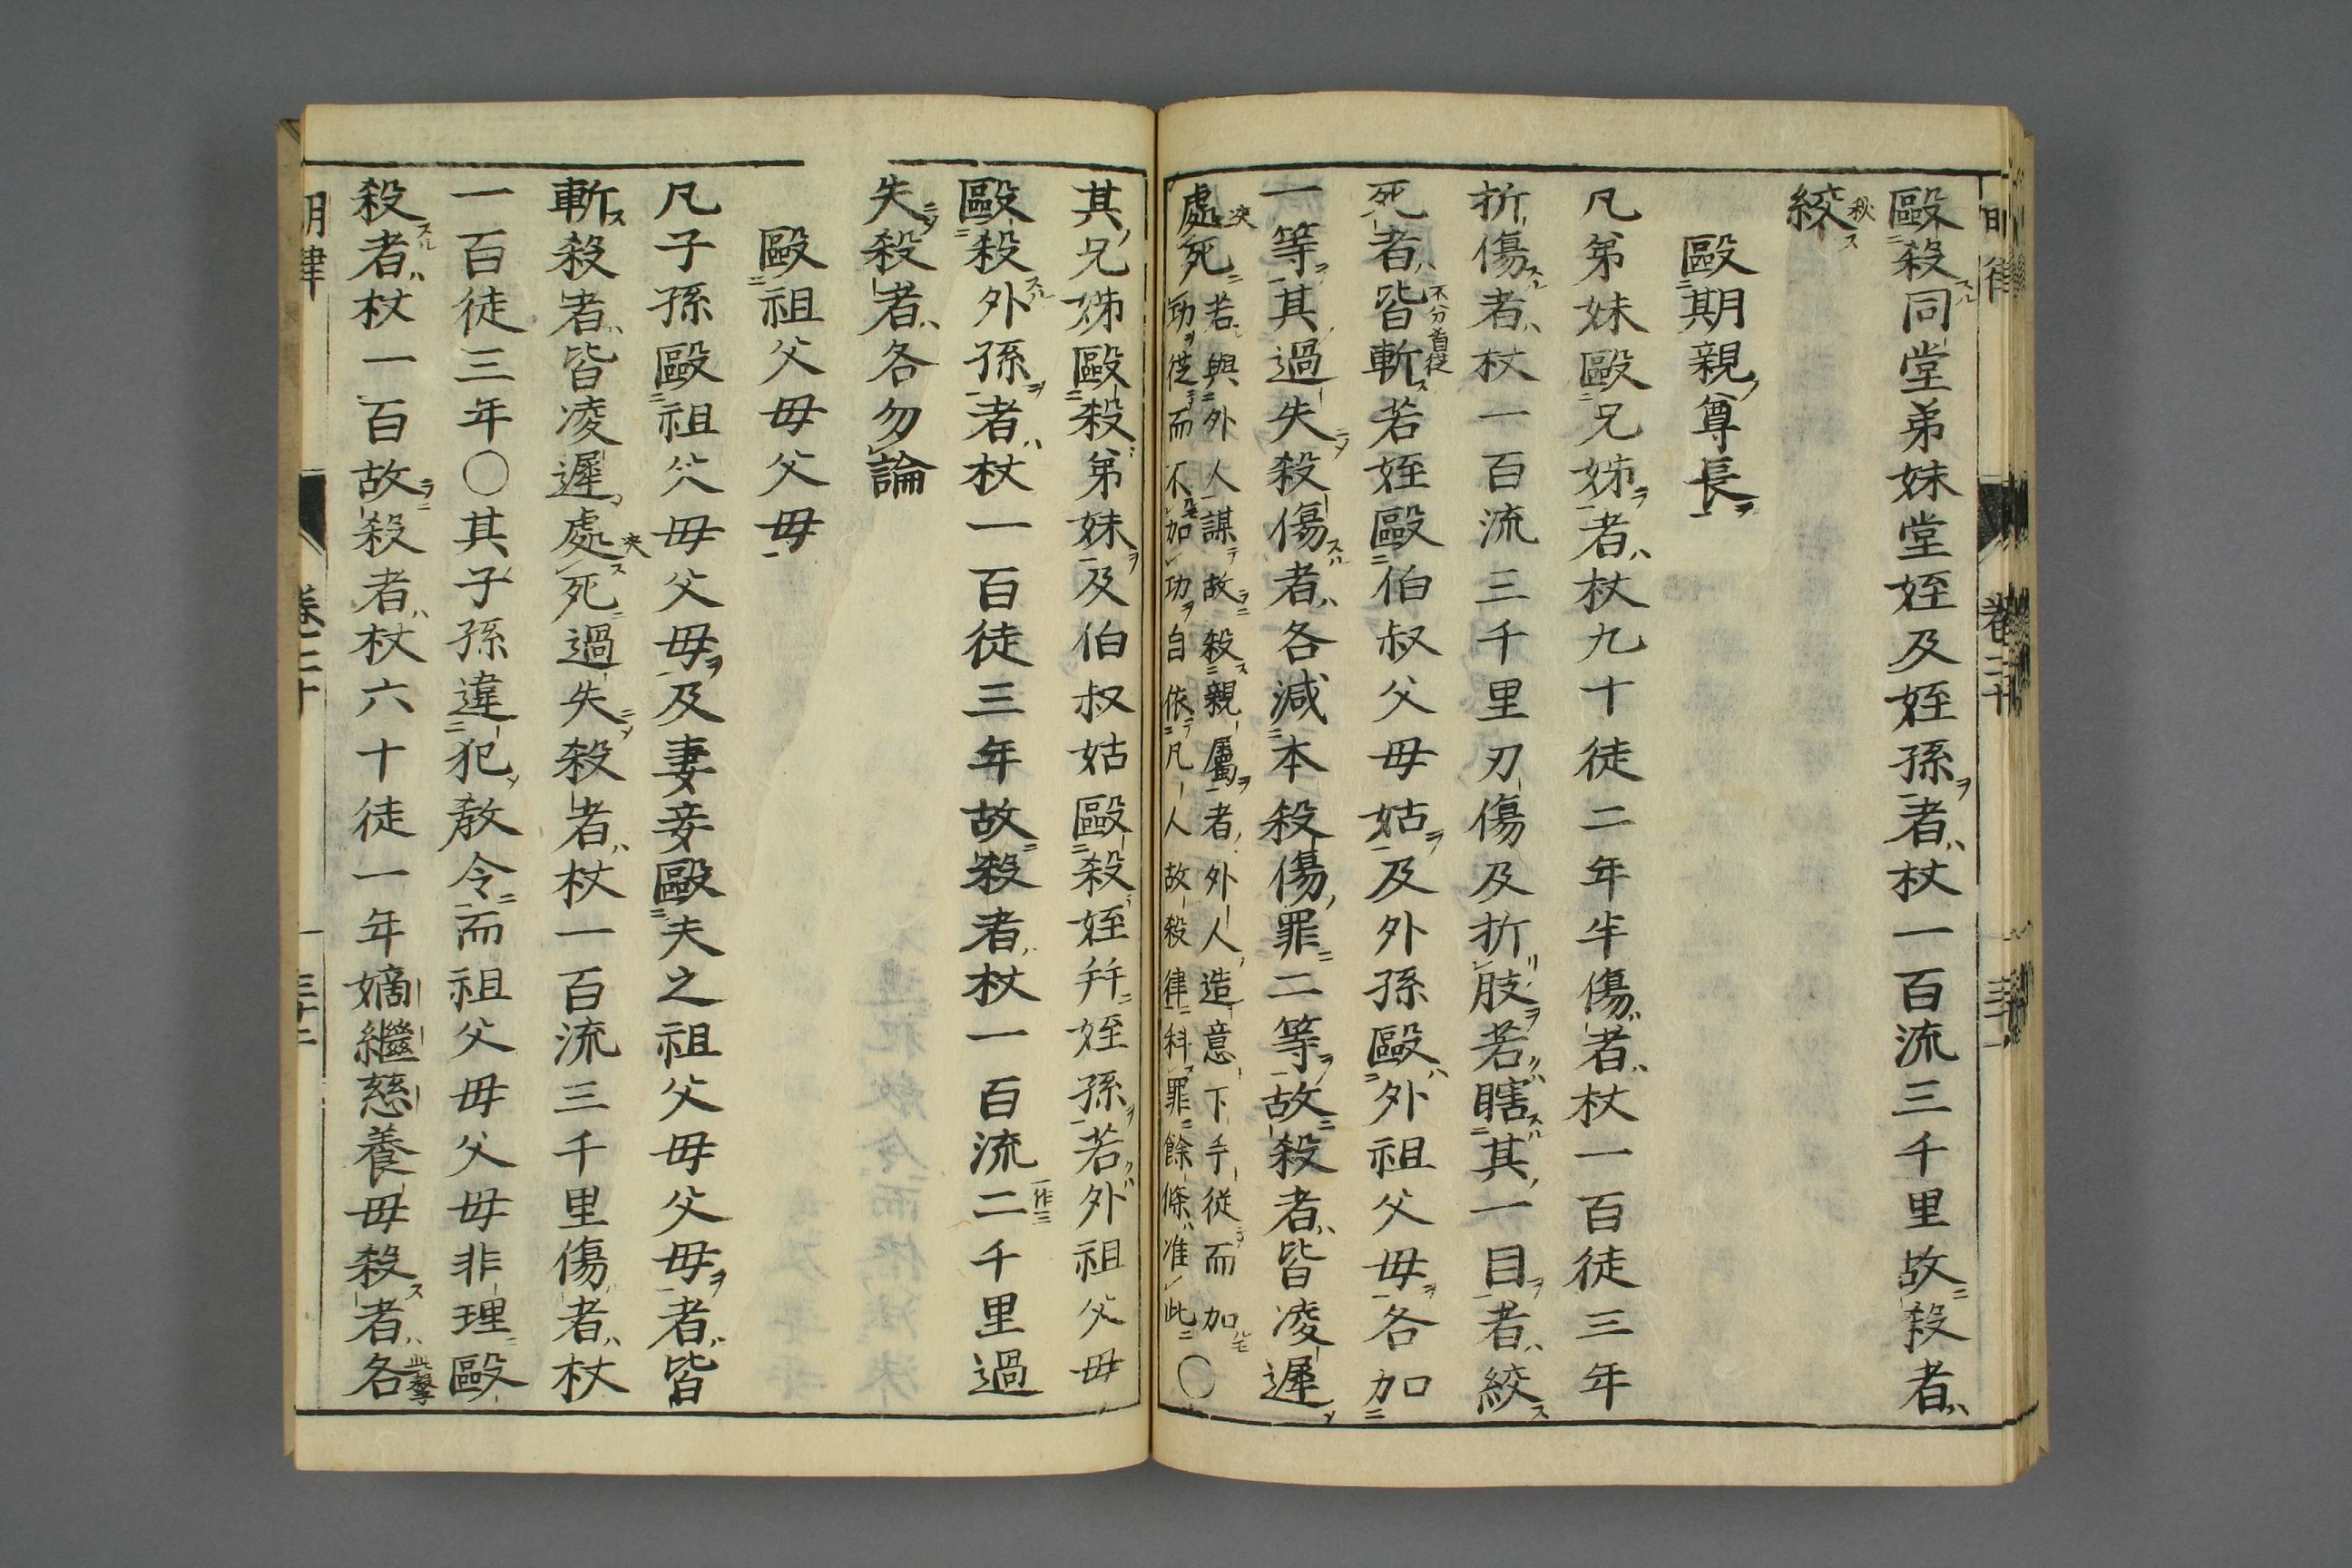 毆殺同堂弟妹堂姪及姪孫者杖一百流三千里故殺者
絞
毆期親尊長
凡弟妹毆兄姊者杖九十徒二年半傷者杖一百徒三年
折傷者杖一百流三千里刃傷及折肢若瞎其一目者絞
死者皆斬不分首從若姪毆伯叔父母姑及外孫毆外祖父母各加
一等其過失殺傷者各減本殺傷罪二等故殺者皆凌遲
處死若與外人謀故殺親屬者外人造意下手從而加
功從而不加功自依凡人故殺律科罪餘條准此○
其兄姊毆殺弟妹及伯叔姑毆殺姪并姪孫若外祖父母
毆殺外孫者杖一百徒三年故殺者杖一百流二一作三千里過
失殺者各勿論
毆祖父母父母
凡子孫毆祖父母父母及妻妾毆夫之祖父母父母者皆
斬殺者皆凌遲處死過失殺者杖一百流三千里傷者杖
一百徒三年○其子孫違犯教令而祖父母父母非理毆
殺者杖一百故殺者杖六十徒一年嫡繼慈養母殺者各
明律
卷二十